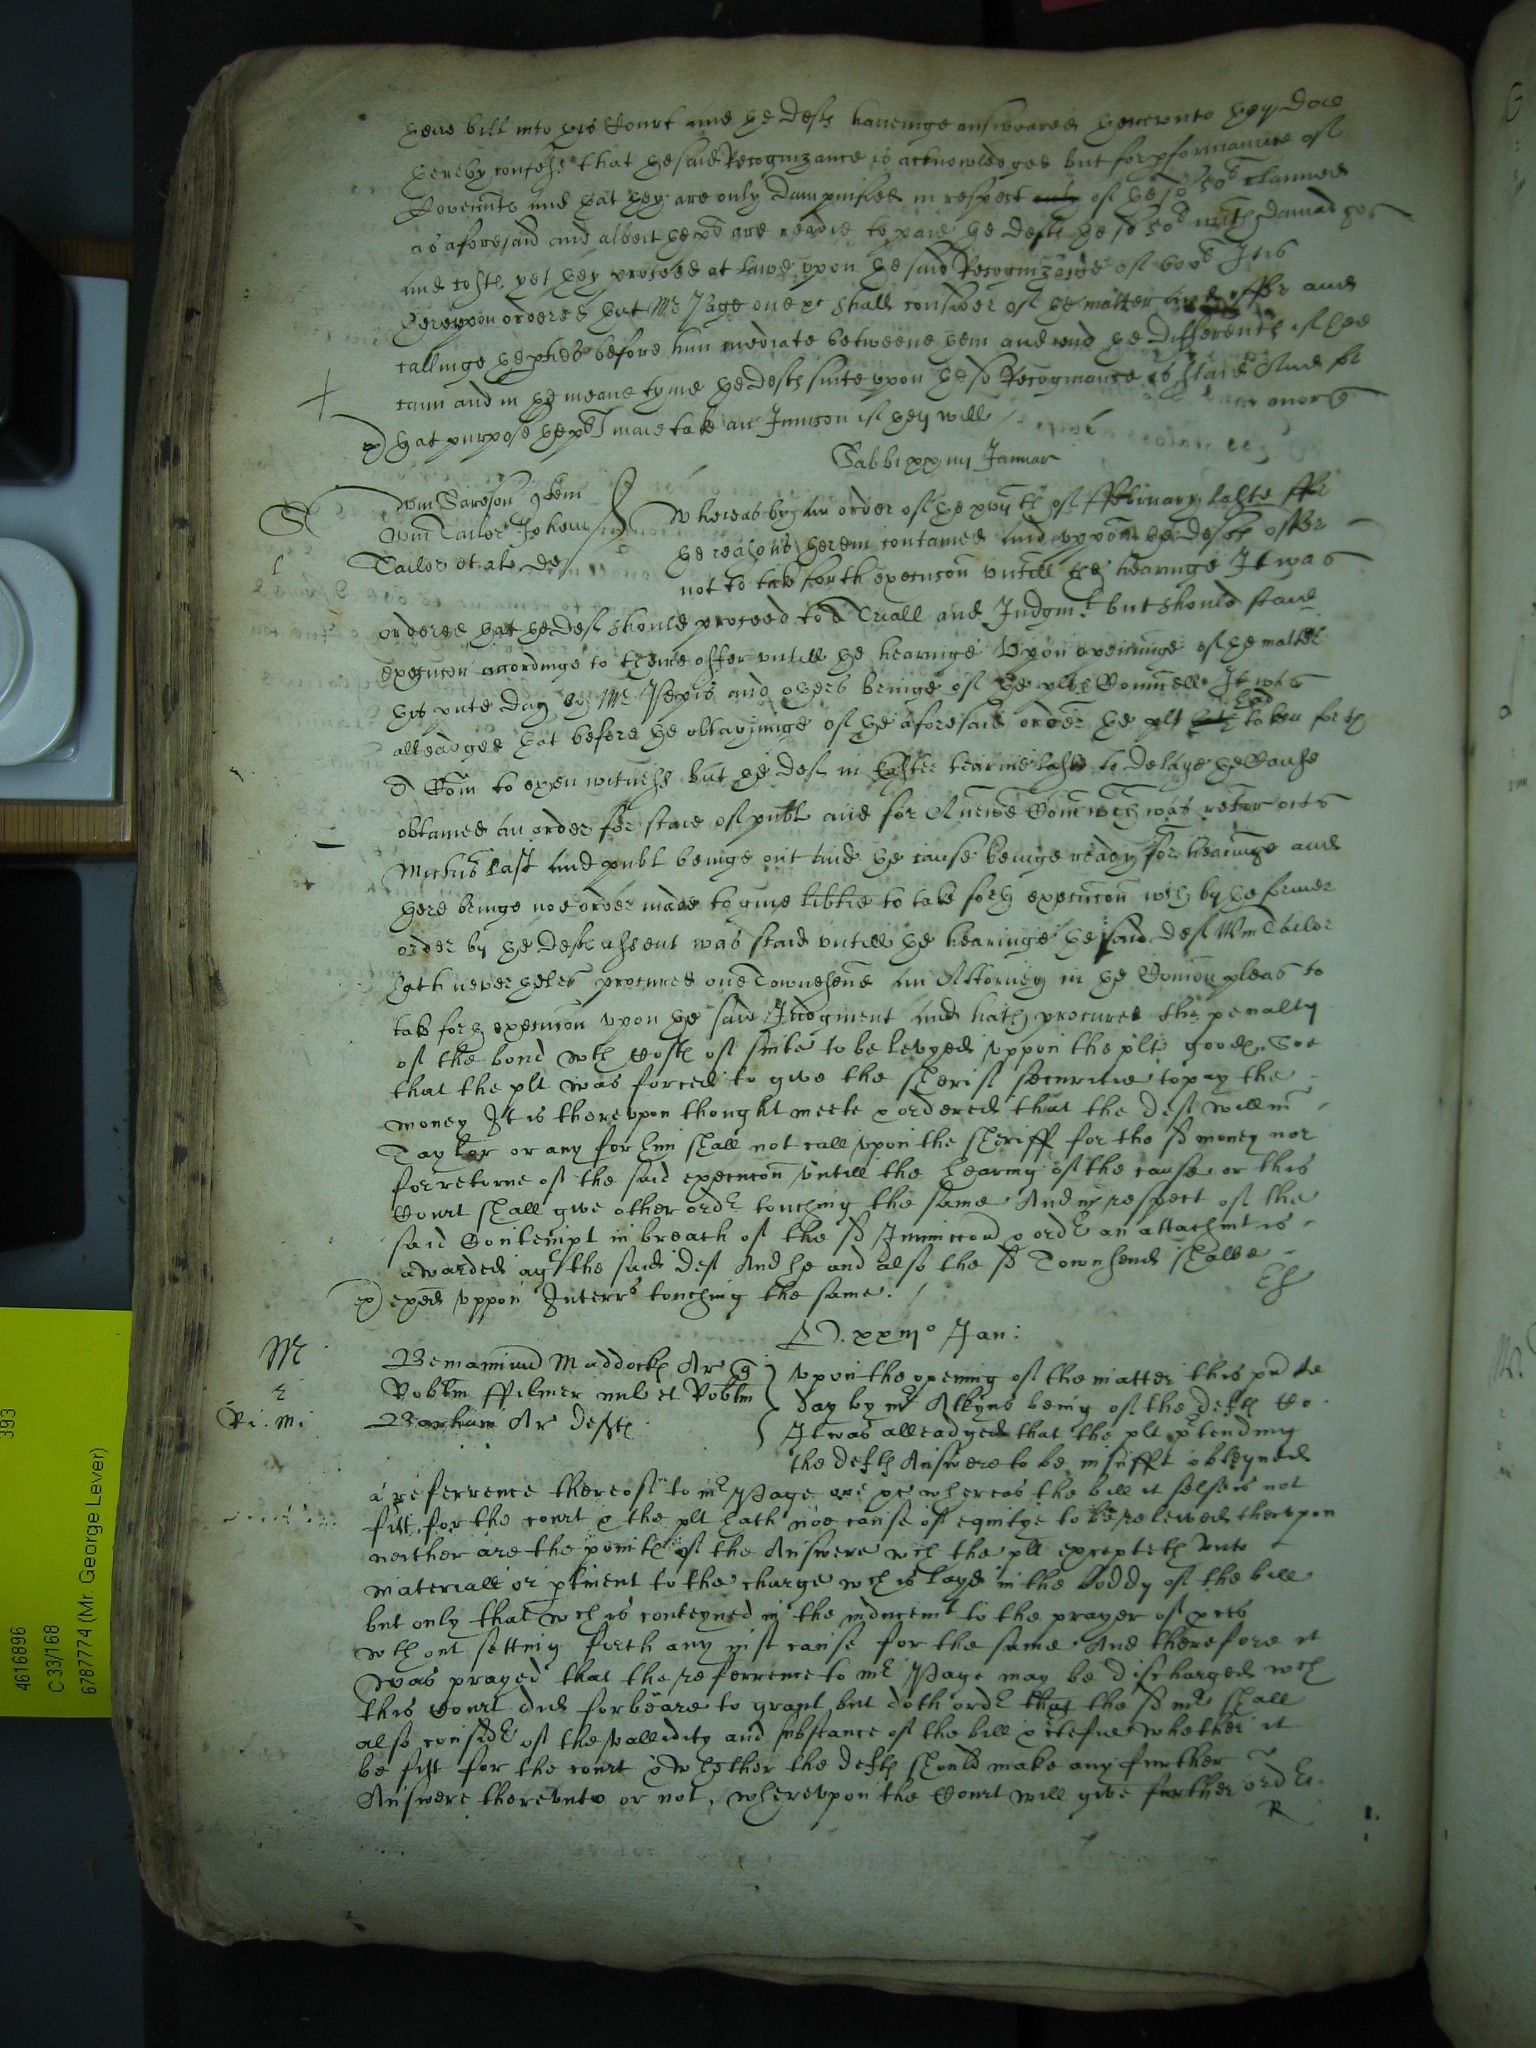 there bill into this Court and the defts haveinge answeared thereunto they doe
thereby confesse that the said Recognizance is acknowledged but for pformaunce of
Covennts and that they are only dampnified in respect of the sd 50l claimed
as aforesaid and albeit the plts are readie to paie the defts the sd 50l with damadges
and costs yet they proceed at lawe upon the said Recognizance of It is
thereupon ordered that Mr Page one &c shall consider of the matter and
callinge the pties before him mediate betweene them and end the differents if hee
cann and in the meane tyme the defts suite upon the sd Recognizance is staied And for
that purpose the plts maie take an Iniuncon if they will
Sabbi xxiiij Januar
Wm Sareson quer
Wm Tailor John
Tailor et al def
Whereas by an order of the of ffebruary laste for
the reasons therein contained and uppon the defts offer
not to take forth execucon untill the hearinge It was
ordered that the deft should proceed to a Triall and Judgmt but should staie
execucon accordinge to theire offer untill the hearinge Upon openinge of the matter
this pnte day by Mr and others beinge of the plts Councell It was
alleadged that before the obtayninge of the aforesaid order the plt had taken forth
a Com to exen witness but the deft in Easter tearme laste to delaye the Cause
obtained an order for staie of publ and for A newe Com wch was retor octs
Michis last and publ beinge out and the cause beinge ready for hearinge and
there beinge noe order made to give libtie to take forth execucon wch by the former
order by the defts assent was staied untill the hearinge the said deft Wm Tailor
hath nevertheles procured one Townsend an Attorney in the Comon pleas to
take forth execucon upon the said Judgment and hath procured the penalty
of the bond wth Costs of suite to be levyed uppon the plts goods, Soe
that the plt was forced to give the sherif securitie to pay the
money It is thereupon thought meete & ordered that the deft Willm
Tayler or any for him shall not call upon the sheriff for the sd money nor
for returne of the said execucon untill the hearing of the cause or this
Court shall give other ordr touching the same And in respect of the
said Contempt in breach of the sd Iniunccon & ordr an attachmt is
awarded agt the said deft And he and also the sd Townsend shalbe
exed uppon Interrs touching the same.
xxiijo Jan:
Mr
Ri. Mi
Beniaminus Maddock Ar q
Robtm ffilmer mil et Robtm
Barham Ar defts
Upon the opening of the matter this pnte
day by mr Atkyns being of the defts Co
It was alleadged that the plt ptending
the defts Answere to be insufft obteyned
a referrence thereof to mr Page one &c whereas the bill it selfe is not
fitt for the court & the plt hath noe cause of equitye to be releived therupon
neither are the points of the Answere wch the plt excepteth unto
materiall or ptinent to the charge wch is layd in the boddy of the bill
but only that wch is conteyned in the inducemt to the prayer of pces
wthout setting forth any iust cause for the same And therefore it
was prayed that the referrence to mr Page may be discharged wch
this Court did forbeare to grant but doth ordr that the sd mr shall
also considr of the vallidity and substance of the bill & certefie whether it
be fitt for the court & whether the defts should make any further
Answere thereunto or not, whereupon the Court will give further ordr.
R
393
4616896
C 33/168
6787774 (Mr. George Lever)